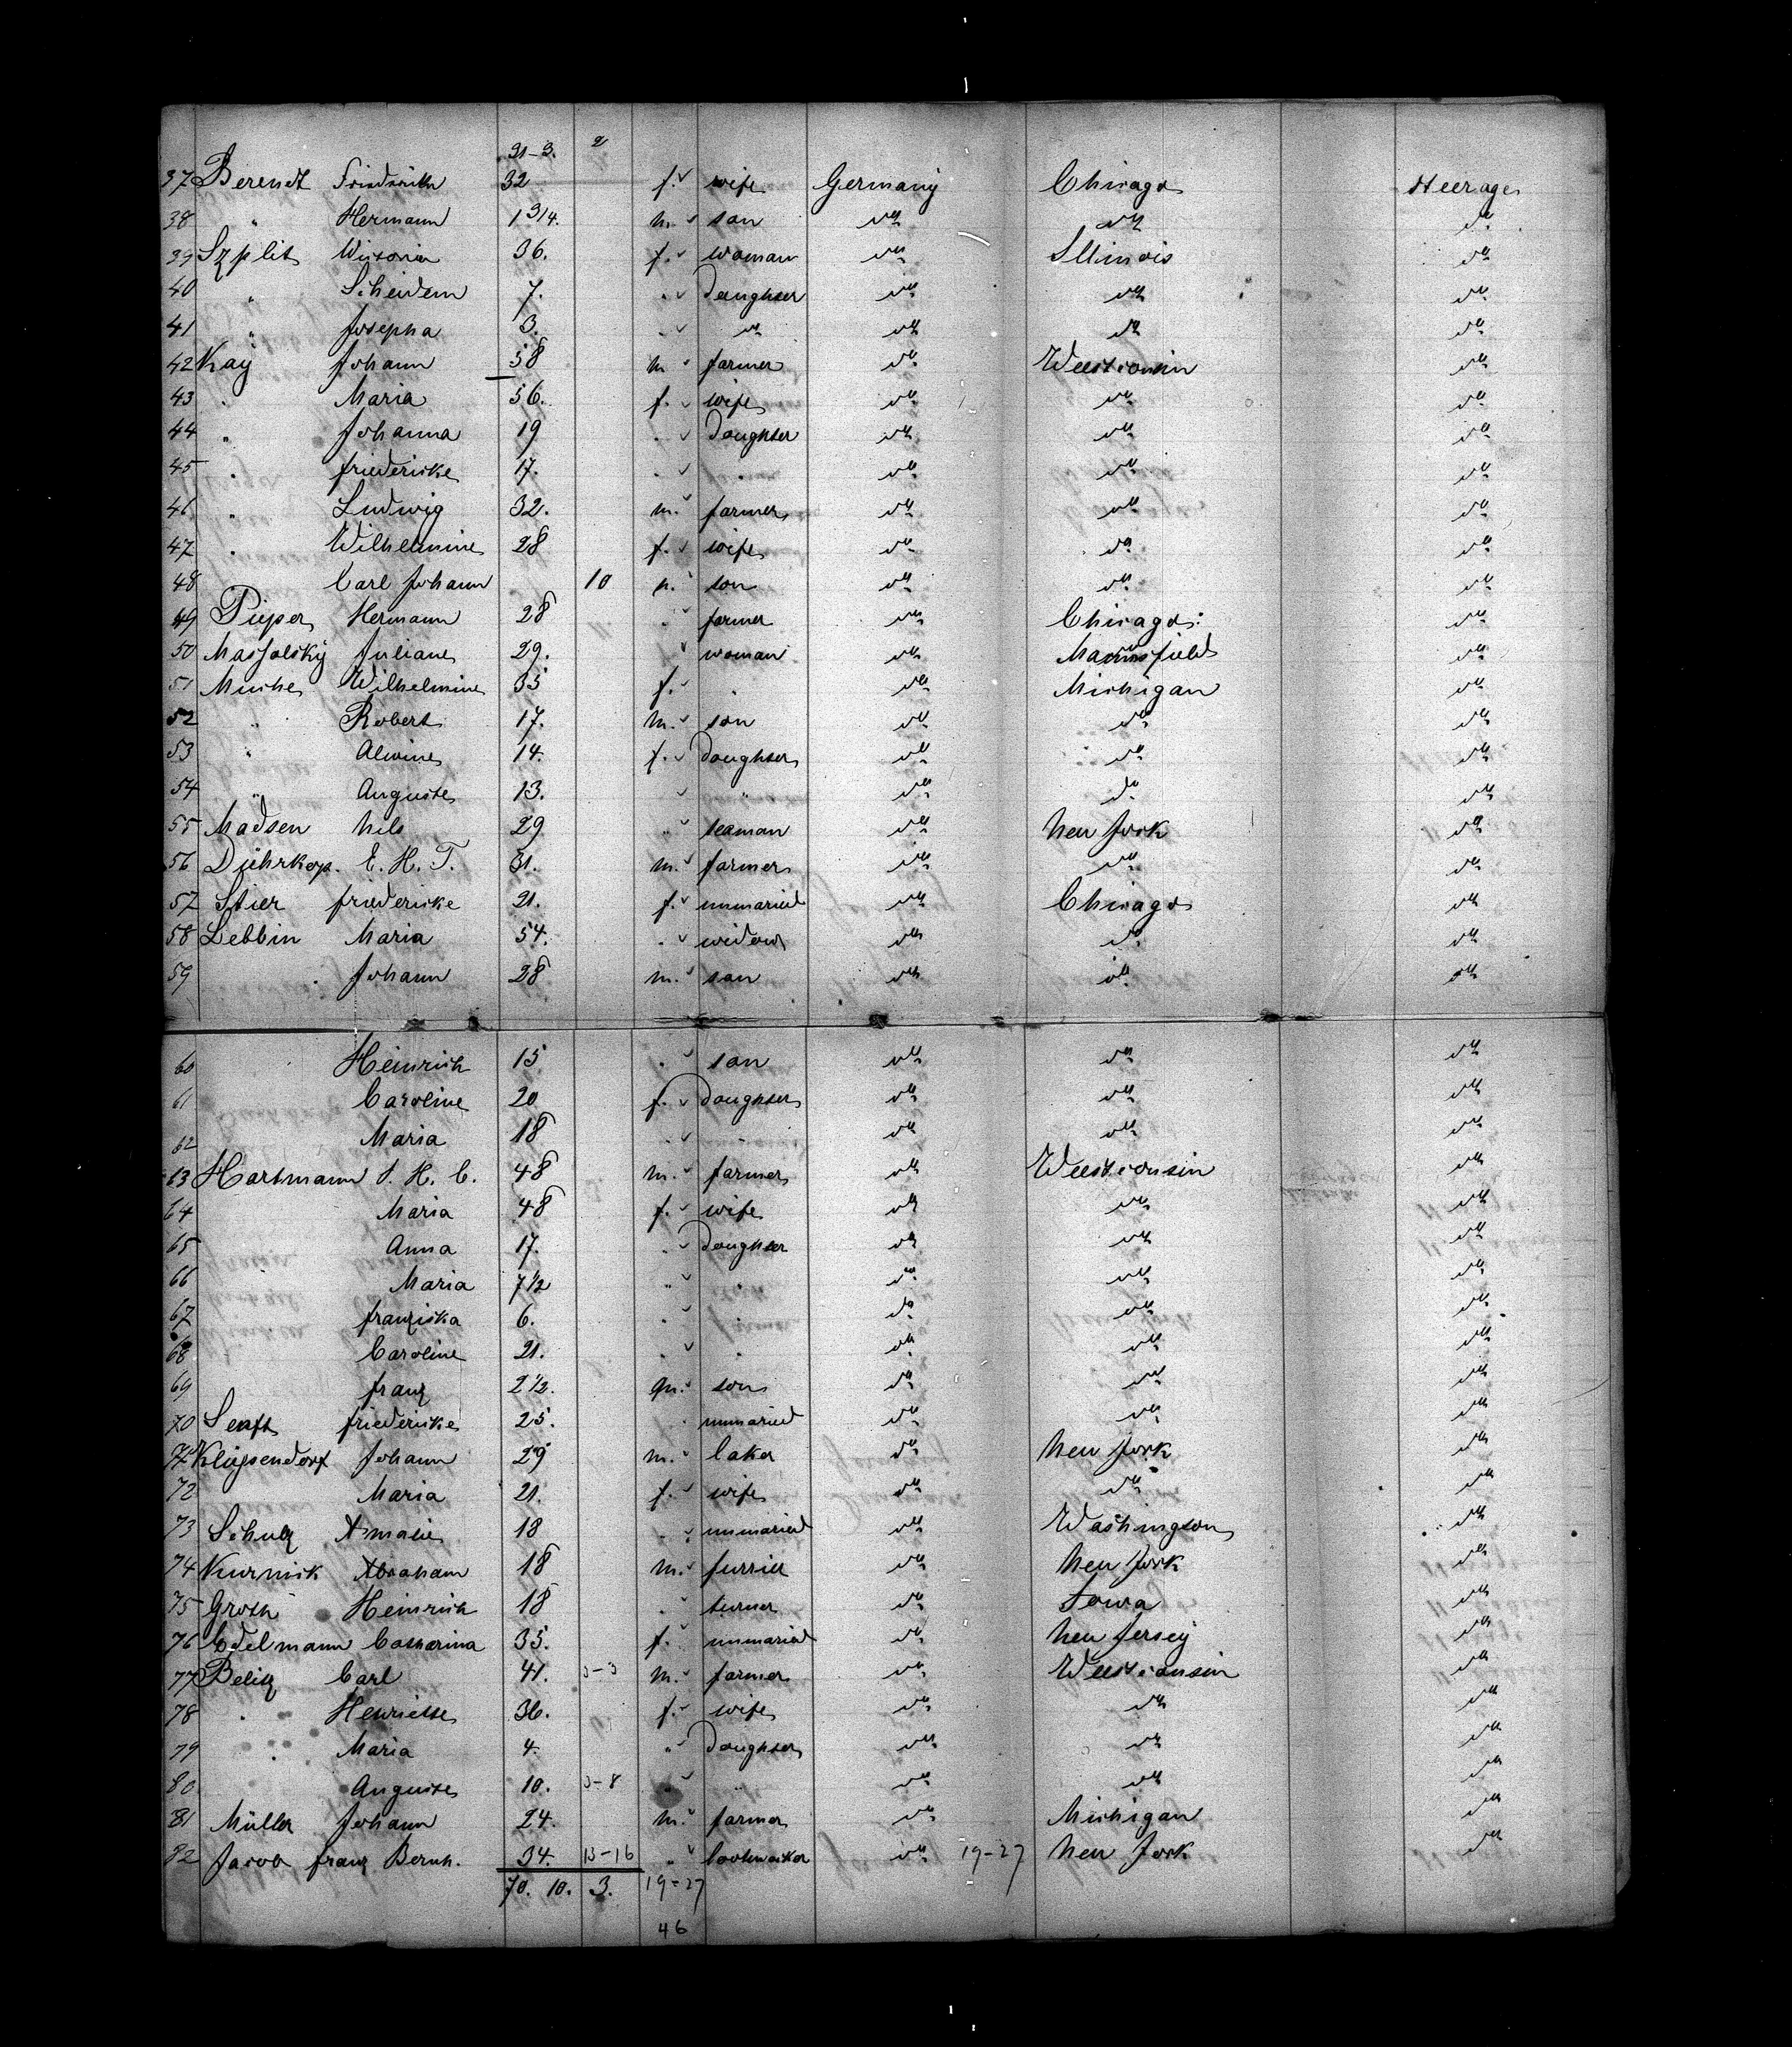 31-3. 2
37 Berendt Friedrike 32 f. wife Germany Chicago steerage
38 " Hermann 1 3/4. m. son do do do
39 Szplit Victoria 36. f. woman do Illinois do
40 " 7. " daughter do do do
41 " Josepha 3. " do do do do
42 Kay Johann 58 m. farmer do Weesconsin do
43 " Maria 56. f. wife do do do
44 " Johanna 19 " daughter do do do
45 " friedericke 17. " " do do do
46 " Ludwig 32. m. farmer do do do
47 " Wilhelmine 28 f. wife do do do
48 Carl Johann 10 m. son do do do
49 Pieper Hermann 28 " farmer do Chicago. do
50 Massalsky Juliane 29. woman do do
51 Muche Wilhelmine 35 f. " do Michigan do
52 " Robert 17. m. son do do do
53 " Alwine 14. f. daughter do do do
54 " Auguste 13. " do do do
55 Madsen Nils 29 " seaman do new York do
56 Dührkop. E. H. T. 31. m. farmer do do do
57 Stier friedericke 21. f. unmaried do Chicago do
58 Lebbin Maria 54. " widow do do do
59 " Johann 28 m. son do do do
60 Heinrich 15 " son do do do
61 Caroline 20 f. daughter do do do
62 Maria 18 " " do do do
63 Hartmann J. H. C. 48 m. farmer do Weesconsin do
64 Maria 48 f. wife do do do
65 Anna 17. " daughter do do do
66 Maria 7 1/2 " " do do do
67 franziska 6. " " do do do
68 Caroline 21. " " do do do
69 franz 2 1/2. m. son do do do
70 Senft friedericke 25. " unmaried do do do
71 Klüpsendorf Johann 29 m. baker do new York do
72 Maria 21. f. wife do do do
73 Schulz Amalie 18 " unmaried do Washington do
74 Kurnik Abraham 18 m. furrier do new York do
75 Groth Heinrich 18 " turner do Iowa do
76 Edelmann Catharina 35. f. unmaried do new Jersey do
77 Belitz Carl 41. 3-3 m. farmer do Weesconsin do
78 " Henriette 36. f. wife do do do
79 " Maria 4. " daughter do do do
80 Auguste 10. 3-8 " " do do do
81 Müller Johann 24. m. farmer do Michigan do
82 Jacob franz Bernh. 34. 13-16 " do 19-27 new York do
70. 10. 3. 19-27
46